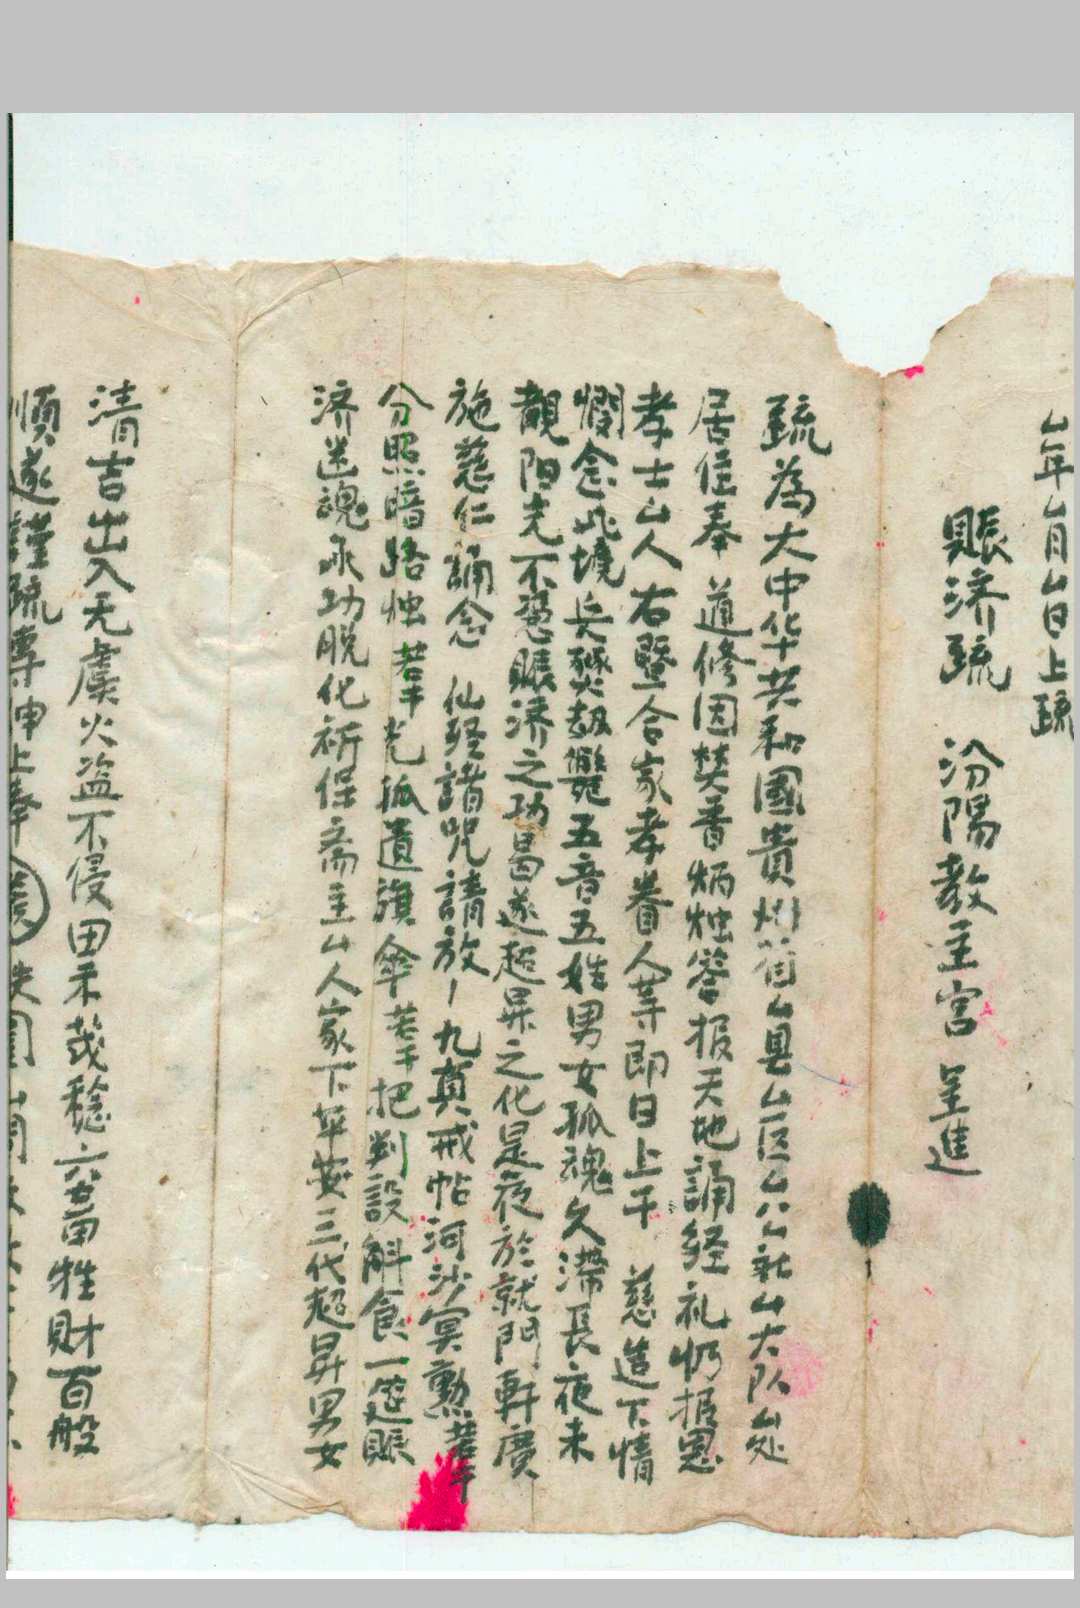 年月日上疏
賬济疏 汾陽教主宮 呈進
疏為大中华共和國貴州省县区公社大队处
居住奉 道修因焚香炳烛答报天地誦经礼忏报恩
孝士人右暨合家孝眷人等即日上干 慈造下情
憫念此境兵燹劫斃五音五姓男女孤魂久滞長夜未
覩阳光不慿賬济之功曷遂超昇之化是夜於就門軒廣
施慈仁誦念 仙经諸咒請放九真戒帖河沙冥勲若干
分照暗路烛若干光孤遺旗傘若干把判設斛食一筵賬
济迷魂承功脱化祈保斋主人家下平安三代超昇男女
清吉出入无虞火盗不侵田禾茂稳六畜牲財百般
順遂謹疏專伸上奉